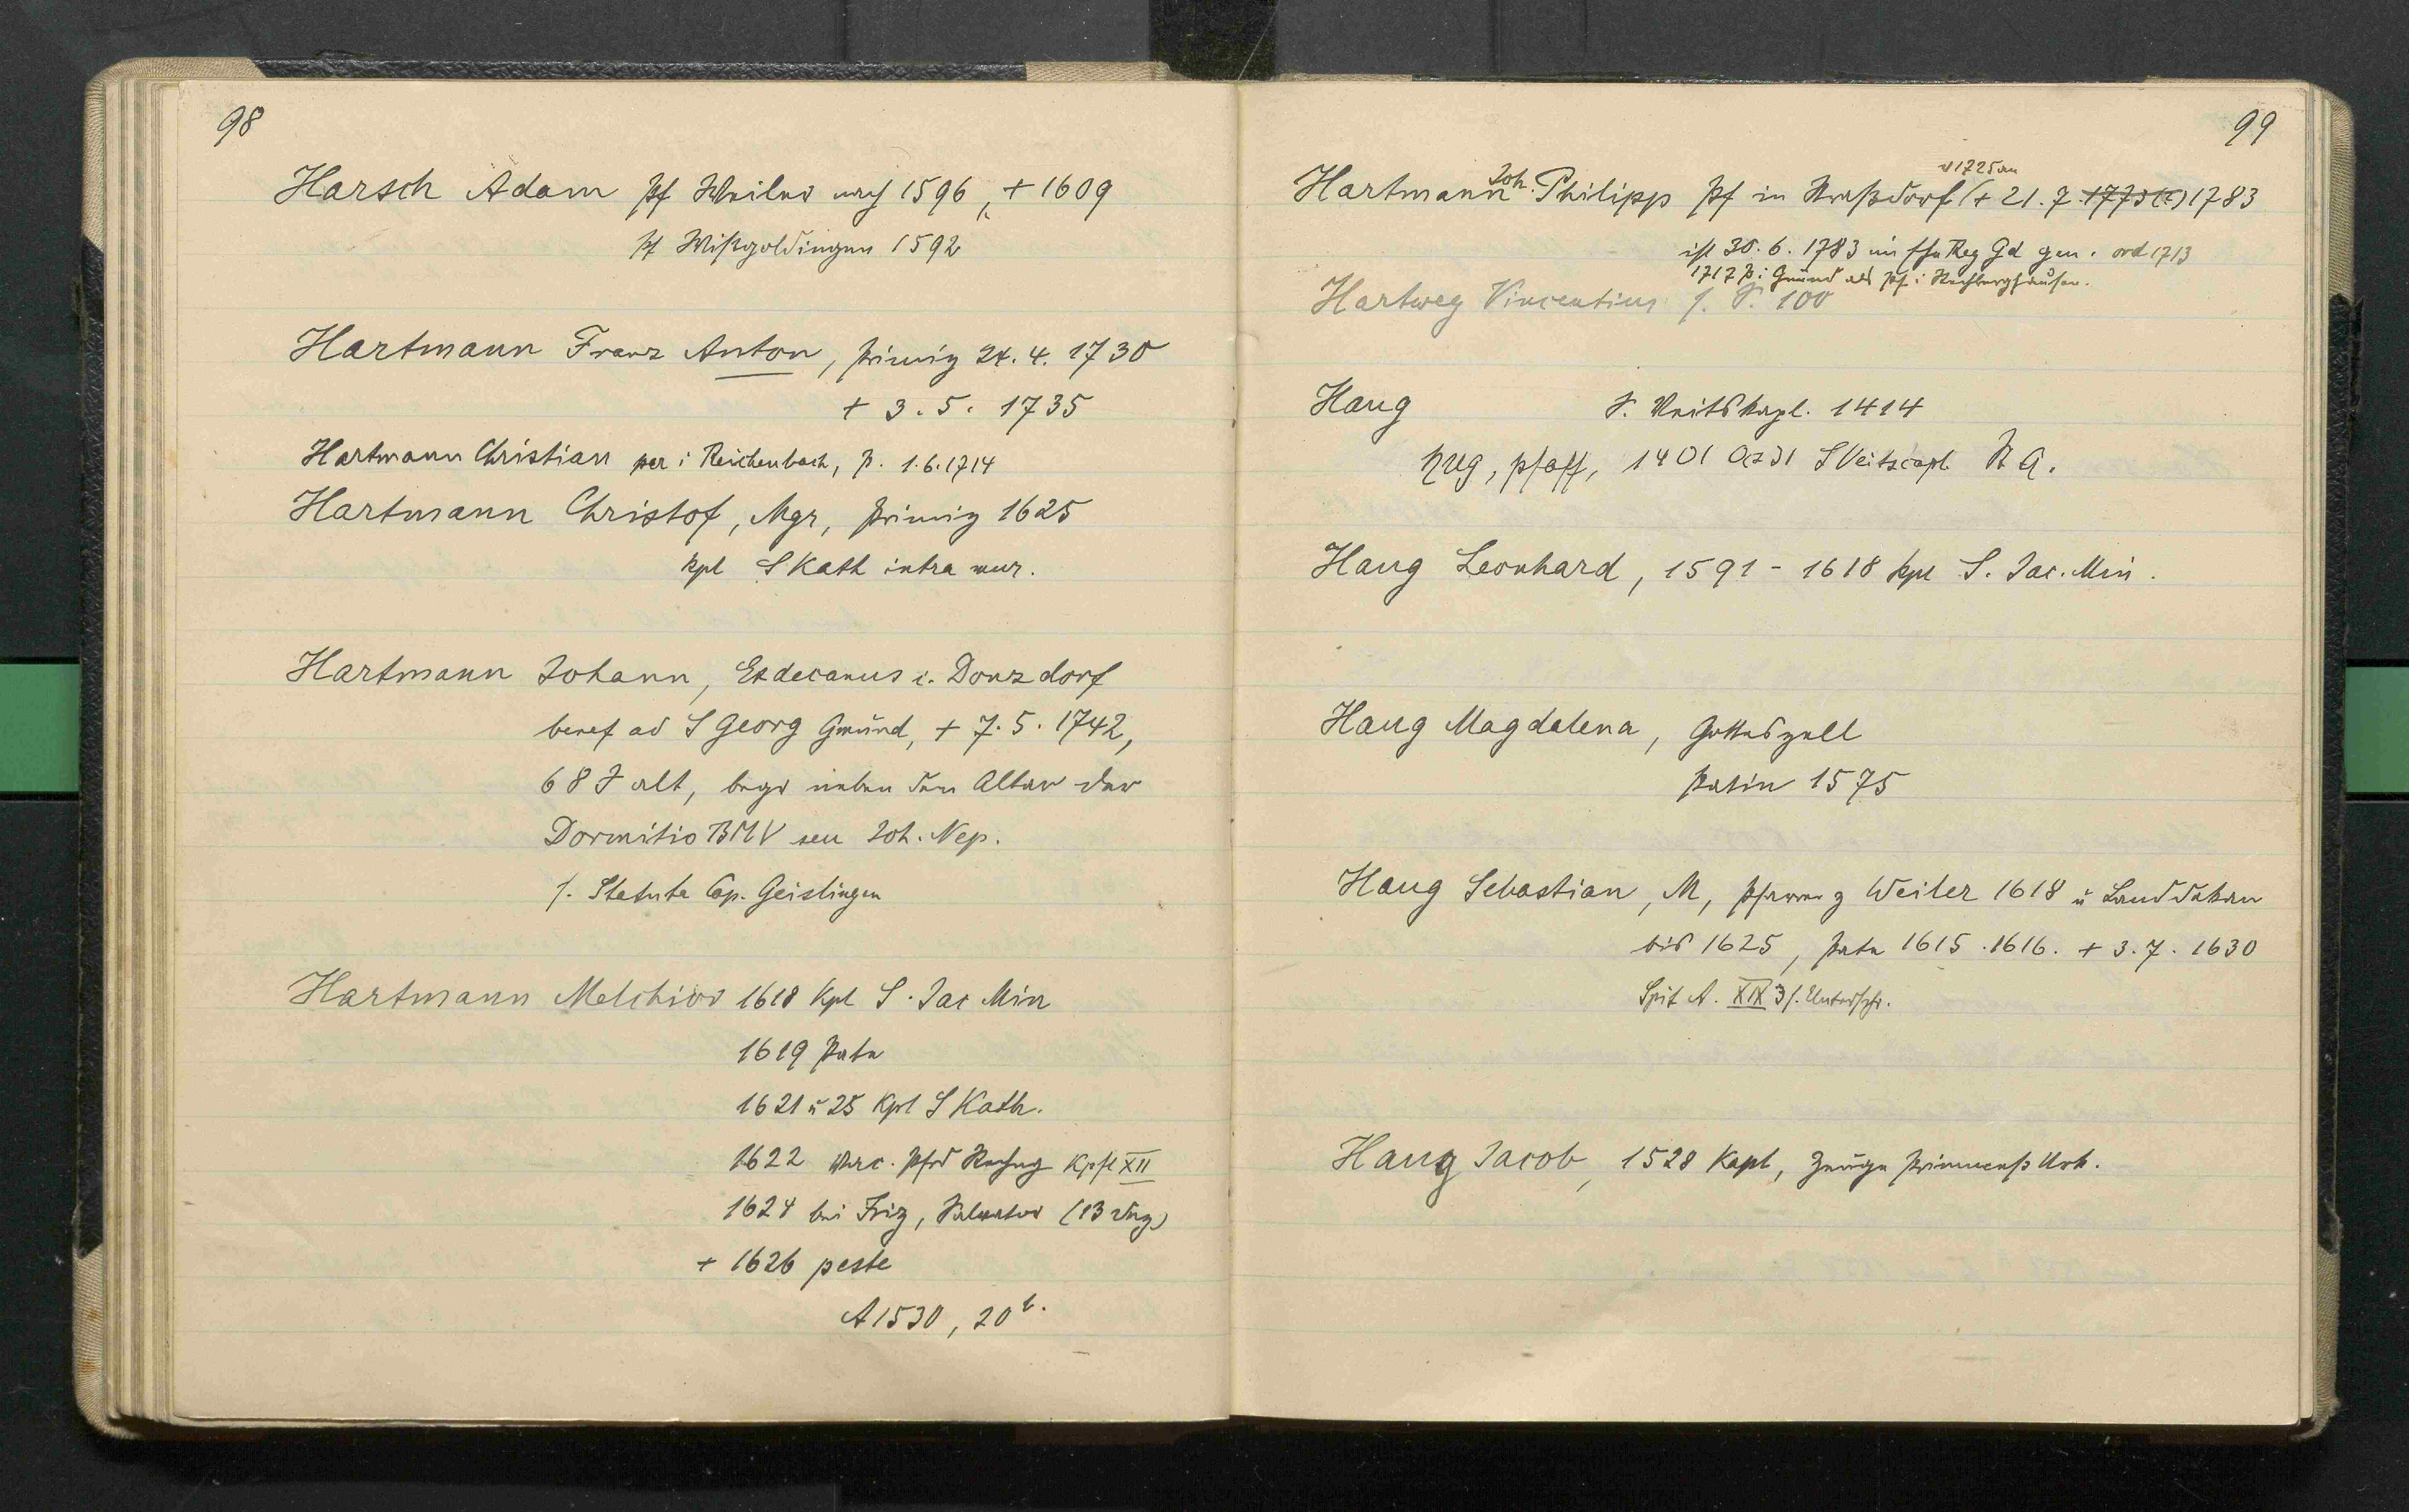 98
Harsch Adam Pf Weiler nach 1596, + 1609
Pf Wißgoldingen 1592
Hartmann Franz Anton, Primiz 24. 4. 1730
+ 3. 5. 1735
Hartmann Christian par i Reichenbach, p. 1.6.1714
Hartmann Christof, Mgr, Primiz 1625
Kpl S Kath intra mur.
Hartmann Johann, Exdecanus i. Donzdorf
benef ad S Georg Gmünd, + 7. 5. 1742,
68 J alt, begr neben dem Altar der
Dormitio BMV seu Joh. Nep.
s. Statuta Cap. Geislingen
Hartmann Melchior 1618 Kpl S. Jac Min
1619 Pate
1621 u 25 Kpl S Kath.
1622 Kpfl XII
1624 bei Friz, Salvator (13
+ 1626 peste
A 1530, 20 b.
99
Hartmann Joh. Philipp Pf in Straßdorf v 1725 an (+ 21. 7. 1773 (?) 1783
ist 30. 6. 1783 im Reg Gd gen. ord 1713
1717 P. i Gmünd als Pf. i Rechberghausen.
Hartweg Vincentius s. S. 100
Haug S. Veitskapl. 1414
Hug, pfaff, 1401 S Veitscapl. St A.
Haug Leonhard, 1591 - 1618 Kpl S. Jac. Min.
Haug Magdalena, Gotteszell
Patin 1575
Haug Sebastian, M, Pfarrer z Weiler 1618 u Landdekan
bis 1625, Pate 1615. 1616. + 3. 7. 1630
Spit A. XIX 3 s. Unterschr.
Haug Jacob, 1528 Kapl, Zeuge Urk.